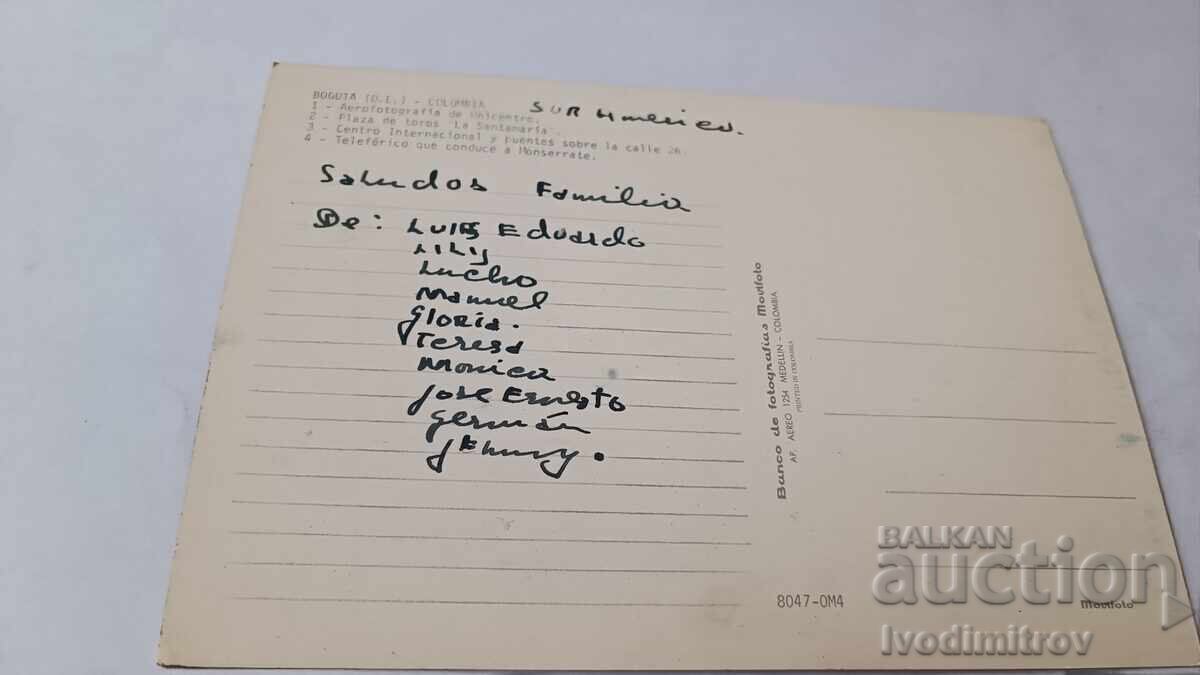 BOGOTA (D.E.) - COLOMBIA
1 - Aerofotografía de Unicentro.
2 - Plaza de toros "La Santamaría".
3 - Centro Internacional y puentes sobre la calle 26.
4 - Teleférico que conduce a Monserrate.
SUR America.
Saludos Familia
De: LUIS Eduardo
LILY
Lucho
Manuel
Gloria.
Teresa
Monica
Jose Ernesto
Germán
Jenny.
Banco de fotografías Movifoto
AP. AEREO 1254 MEDELLIN - COLOMBIA
PRINTED IN COLOMBIA
8047-OM4
Movifoto
BALKAN
auction
Ivodimitrov